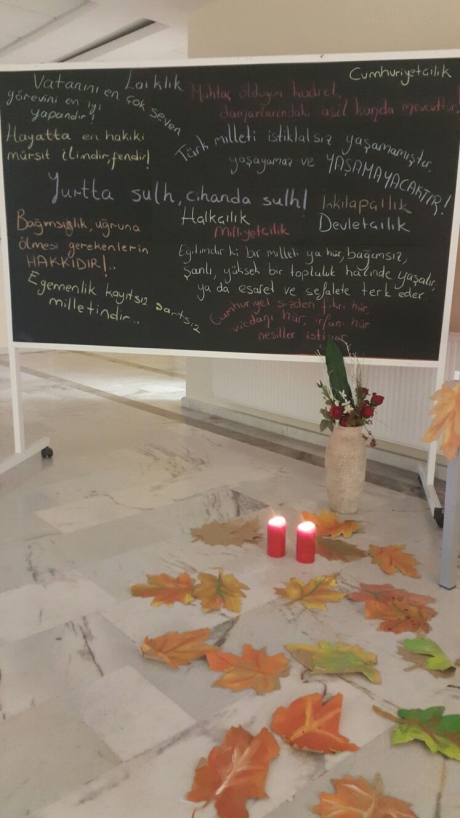 Vatanını en çok seven
görevini en iyi
yapandır!
Laiklik
Muhtaç olduğun kudret,
damarlarındaki asil kanda mevcuttur!
Cumhuriyetçilik
Hayatta en hakiki
mürşit ilimdir, fendir!
Türk milleti istiklalsiz yaşamamıştır.
yaşayamaz ve YAŞAMAYACAKTIR!
Yurtta sulh, cihanda sulh!
İnkılapçılık
Halkçılık
Devletçilik
Milliyetçilik
Bağımsızlık, uğruna
ölmesi gerekenlerin
HAKKIDIR!..
Eğitimdir ki bir milleti ya hür, bağımsız,
şanlı, yüksek bir topluluk halinde yaşatır,
ya da esaret ve sefalete terk eder.
Egemenlik kayıtsız şartsız
milletindir..
Cumhuriyet sizden fikri hür,
vicdanı hür, irfanı hür
nesiller ister